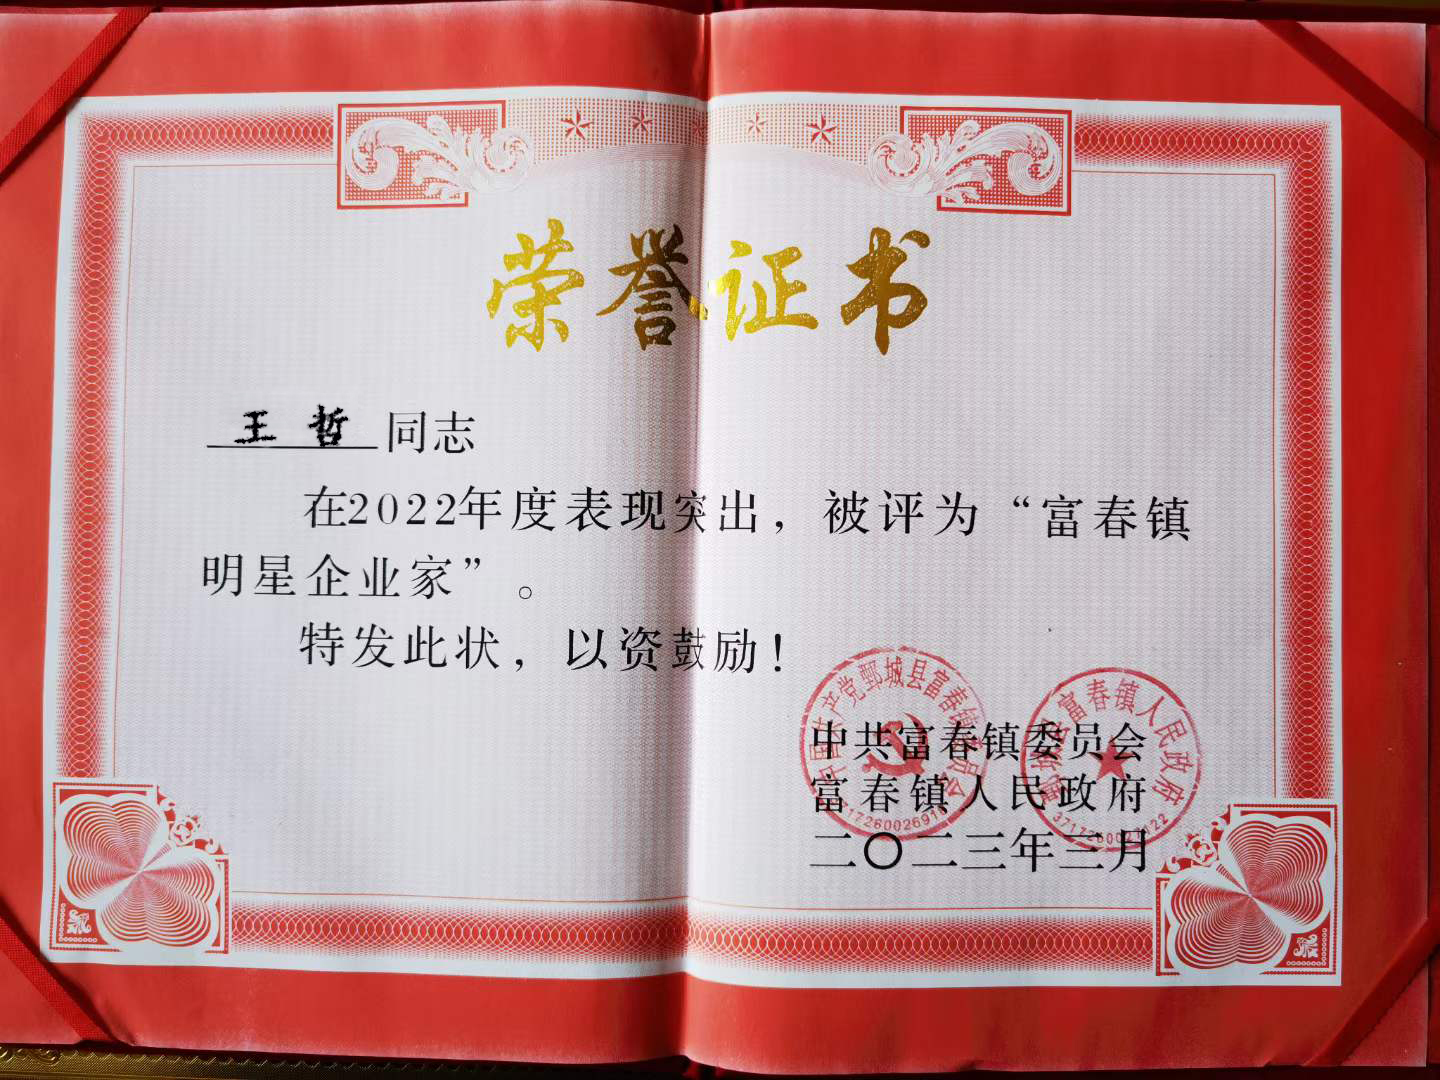 荣誉证书
王哲同志
在2022年度表现突出，被评为“富春镇
明星企业家”。
特发此状，以资鼓励！
中国共产党鄄城县富春镇委员会
鄄城县富春镇人民政府
中共富春镇委员会
富春镇人民政府
二〇二三年三月